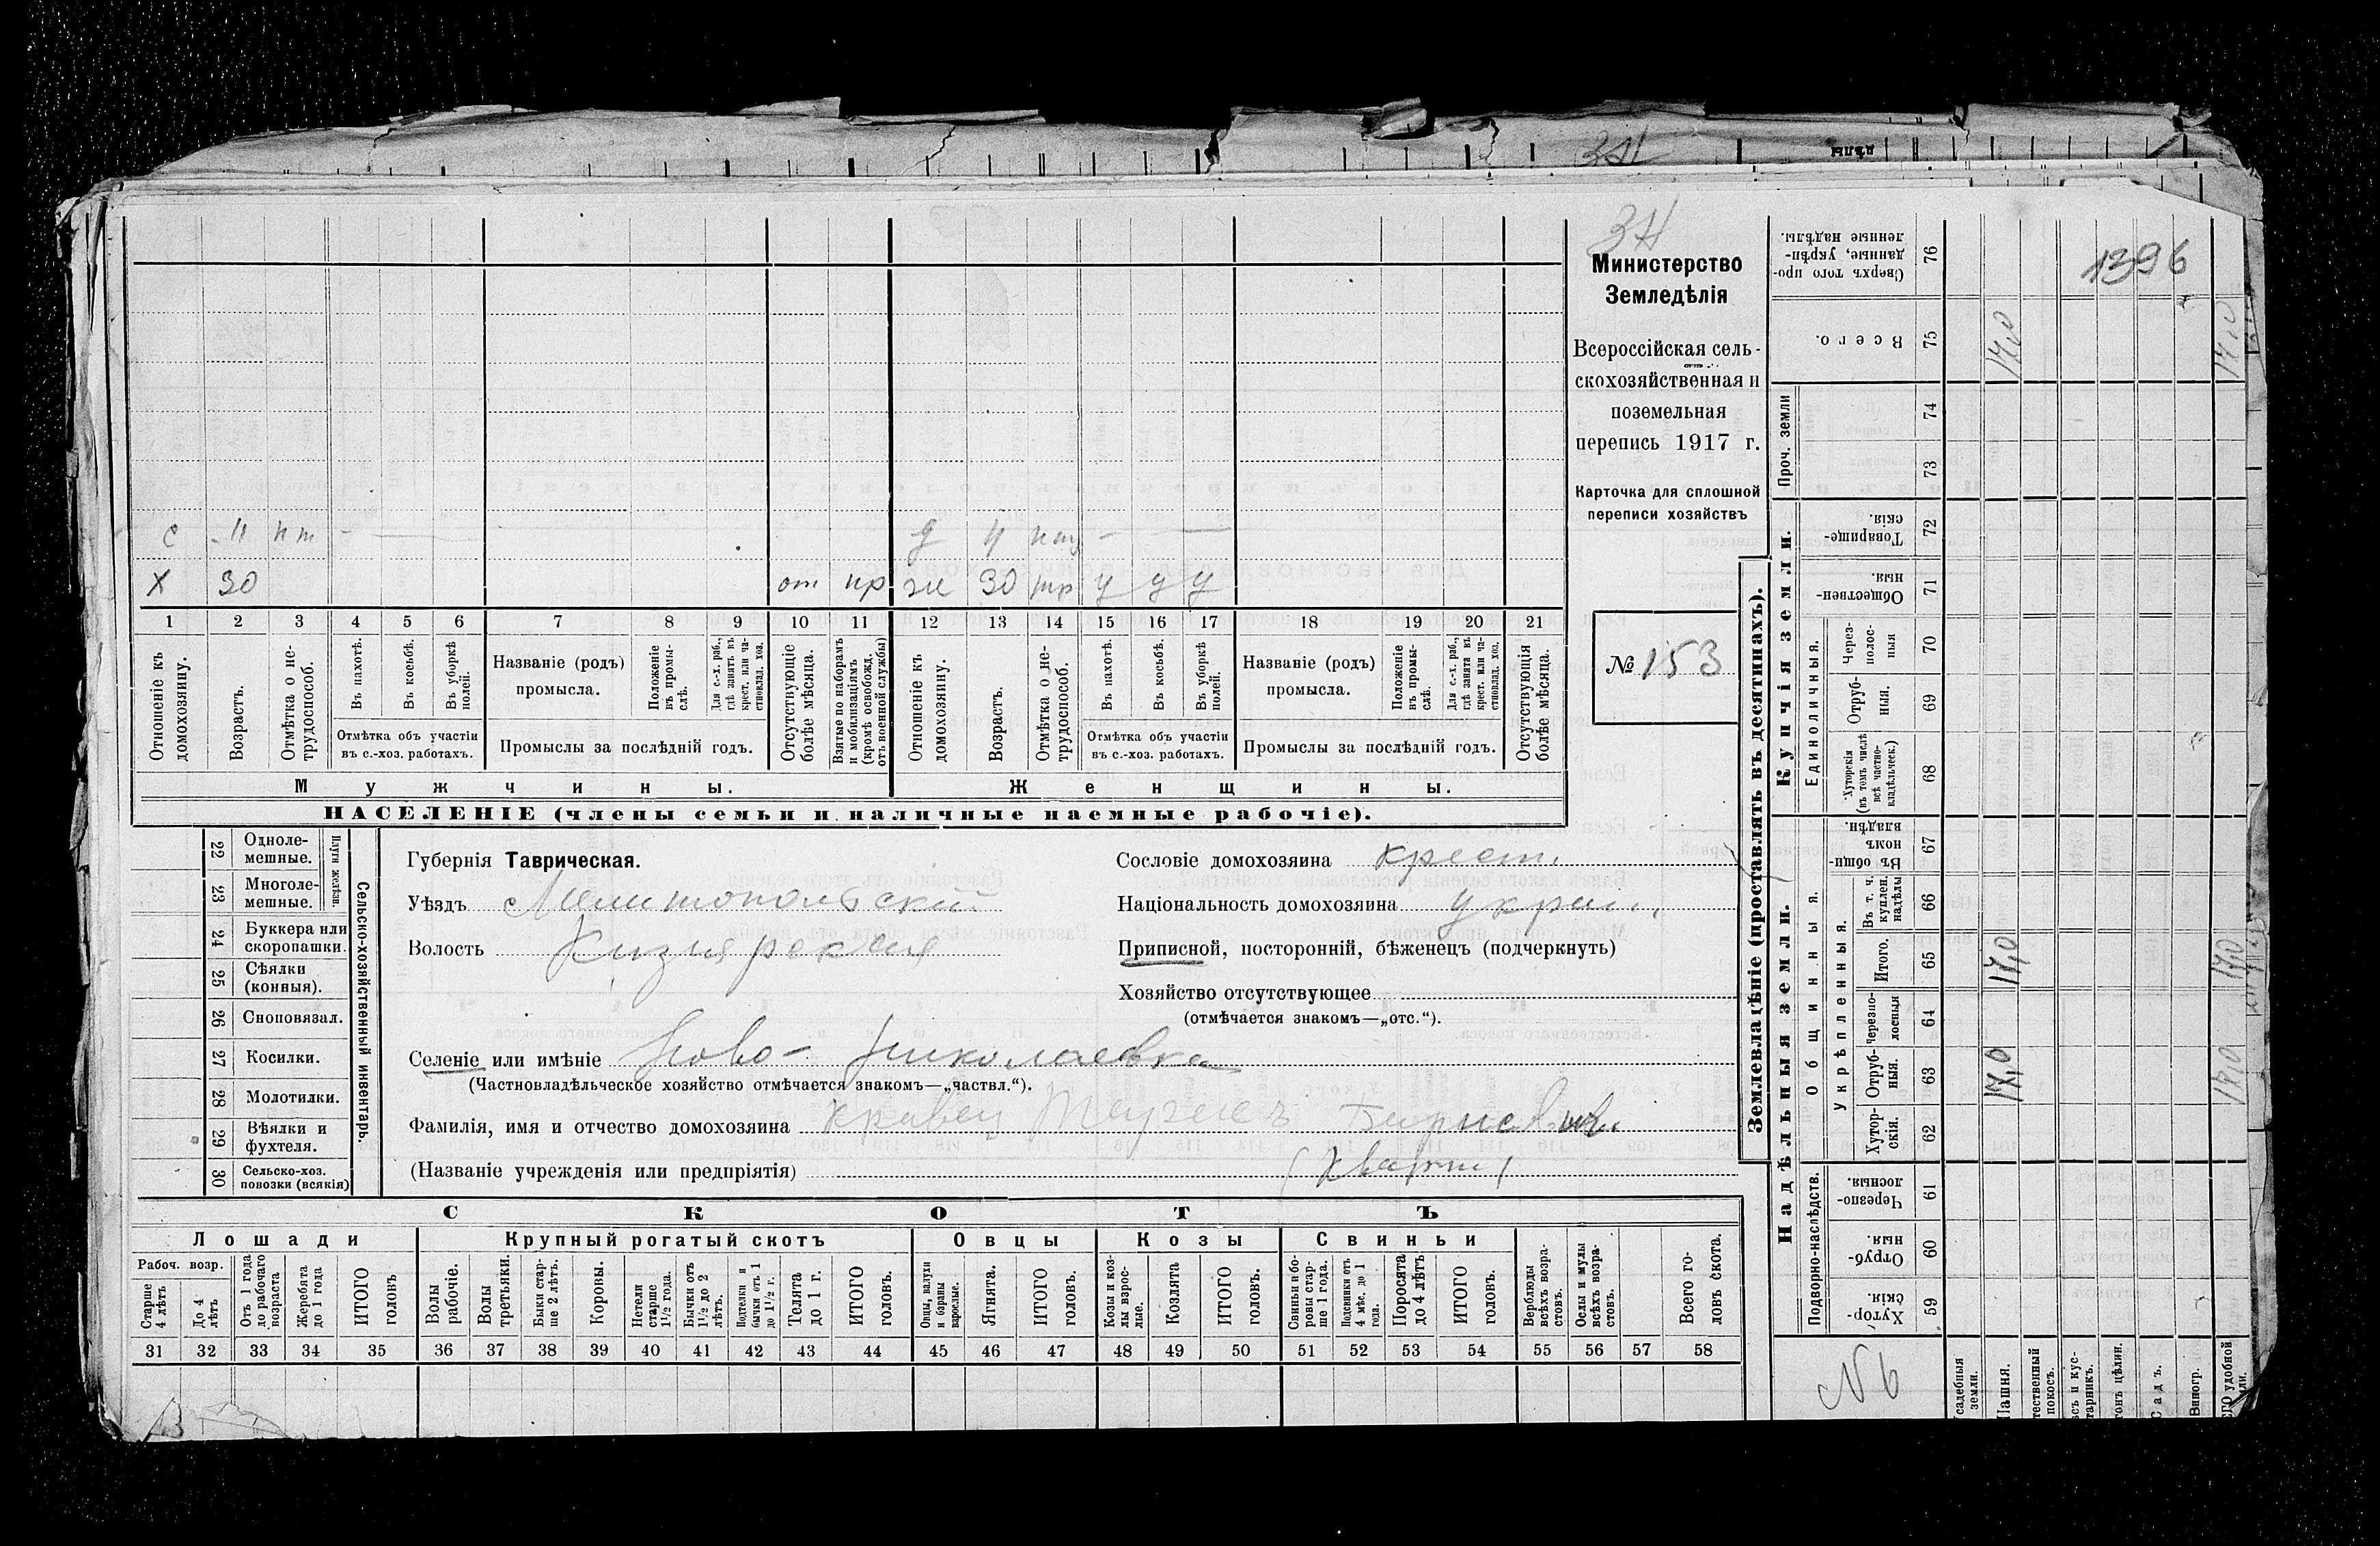 дѣлы
3Н
Министерство
Земледѣлія
Всероссійская сель-
скохозяйственная и
поземельная
перепись 1917 г.
Карточка для сплошной
переписи хозяйствъ
№ 153
с 11 нт — —
д 4 — —
Х 30 от пр
ж 30 тр у у у
1 2 3 4 5 6 7 8 9 10 11 12 13 14 15 16 17 18 19 20 21
Отношеніе къ домохозяину.
Возрастъ.
Отмѣтка о не-трудоспособ.
Въ пахотѣ.
Въ косьбѣ.
Въ уборкѣ полей.
Отмѣтка объ участіи
въ с.-хоз. работахъ.
Названіе (родъ)
промысла.
Положеніе въ промы-слѣ.
Для с.-х. раб., гдѣ занятъ въ крест. или ча-стновлад. хоз.
Промыслы за послѣдній годъ.
Отсутствующіе болѣе мѣсяца.
Взятые по наборамъ и мобилизаціямъ (кромѣ освобожд. отъ военной службы)
Отношеніе къ домохозяину.
Возрастъ.
Отмѣтка о не-трудоспособ.
Въ пахотѣ.
Въ косьбѣ.
Въ уборкѣ полей.
Отмѣтка объ участіи
въ с.-хоз. работахъ.
Названіе (родъ)
промысла.
Положеніе въ промы-слѣ.
Для с.-х. раб., гдѣ занята въ крест. или ча-стновлад. хоз.
Промыслы за послѣдній годъ.
Отсутствующія болѣе мѣсяца.
Мужчины.
Женщины.
НАСЕЛЕНІЕ (члены семьи и наличные наемные рабочіе).
22 Одноле-мешные.
23 Многоле-мешные.
Плуги желѣзн.
24 Буккера или скоропашки.
25 Сѣялки (конныя).
26 Сноповязал.
27 Косилки.
28 Молотилки.
29 Вѣялки и фухтеля.
30 Сельско-хоз. повозки (всякія)
Сельско-хозяйственный инвентарь.
Губернія Таврическая.
Уѣздъ Мелитопольскій
Волость Кизиярская
Селеніе или имѣніе Ново-Николаевка
(Частновладѣльческое хозяйство отмѣчается знакомъ—„частвл.“).
Фамилія, имя и отчество домохозяина Кравец
(Названіе учрежденія или предпріятія)
Сословіе домохозяина крест.
Національность домохозяина украин.
Приписной, посторонній, бѣженецъ (подчеркнуть)
Хозяйство отсутствующее
(отмѣчается знакомъ—„отс.“).
СКОТЪ
Лошади
Крупный рогатый скотъ
Овцы
Козы
Свиньи
Рабоч. возр.
Старше 4 лѣтъ
До 4 лѣтъ
Отъ 1 года до рабочаго возраста
Жеребята до 1 года
ИТОГО головъ
Волы рабочіе.
Волы третьяки.
Быки стар-ше 2 лѣтъ.
Коровы.
Нетели старше 1½ года.
Бычки отъ 1½ до 2 лѣтъ.
Подтелки и бычки отъ 1 до 1½ г.
Телята до 1 г.
ИТОГО головъ.
Овцы, валухи и бараны взрослые.
Ягнята.
ИТОГО головъ.
Козы и коз-лы взрос-лые.
Козлята
ИТОГО головъ.
Свиньи и бо-ровы стар-ше 1 года.
Подсвинки отъ 4 мѣс. до 1 года.
Поросята до 4 лѣтъ
ИТОГО головъ.
Верблюды всѣхъ возра-стовъ.
Ослы и мулы всѣхъ возра-стовъ.
Всего го-ловъ скота.
31 32 33 34 35 36 37 38 39 40 41 42 43 44 45 46 47 48 49 50 51 52 53 54 55 56 57 58
Землевладѣніе (проставлять въ десятинахъ).
Купчія земли.
Надѣльныя земли.
76 Сверхъ того про-данные, укрѣп-ленные надѣлы.
75 Всего.
Проч. земли
74
73
72 Товарище-скія.
71 Обществен-ныя.
Единоличныя.
70 Через-полос-ныя
69 Отруб-ныя.
68 Хуторскія (въ томъ числѣ всѣ частно-владѣльческ.)
Общинныя.
67 Въ общи-номъ владѣн.
Укрѣпленныя.
66 Въ т. ч. куплен. надѣлы
65 Итого.
64 Черезпо-лосныя
63 Отруб-ныя.
62 Хутор-скія.
Подворно-наслѣдств.
61 Черезпо-лосныя.
60 Отруб-ныя.
59 Хутор-скія.
1396
17,0 17,0
17,0 17,0
17,0 17,0
N 6
Усадебныя земли.
Пашня.
покосъ.
Садъ.
Виногр.